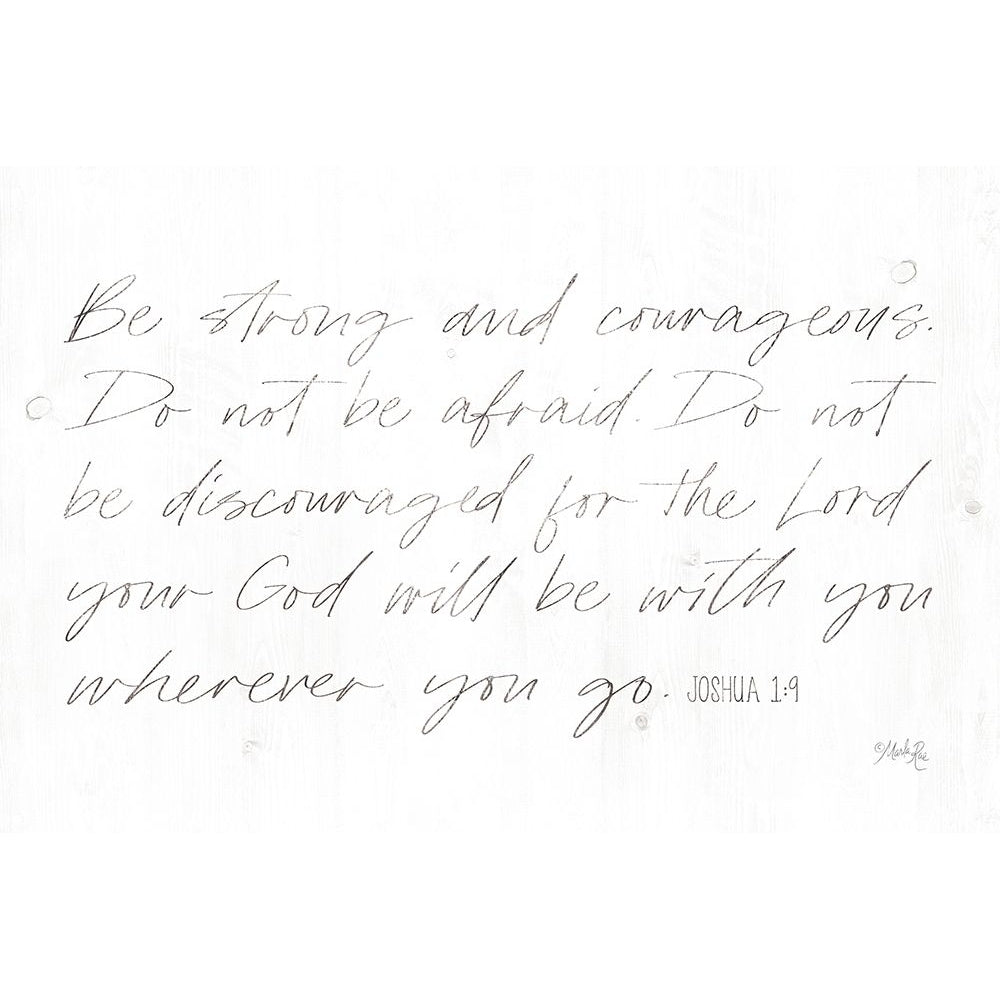 Be strong and courageous.
Do not be afraid. Do not
be discouraged for the Lord
your God will be with you
wherever you go. JOSHUA 1:9
©Marla Rae